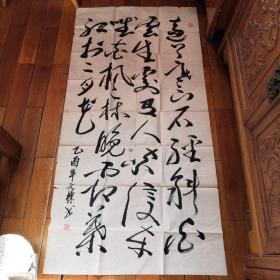 遠上寒山石徑斜白
雲生處有人家停車
坐愛楓林晚霜葉
紅於二月花
乙酉年文